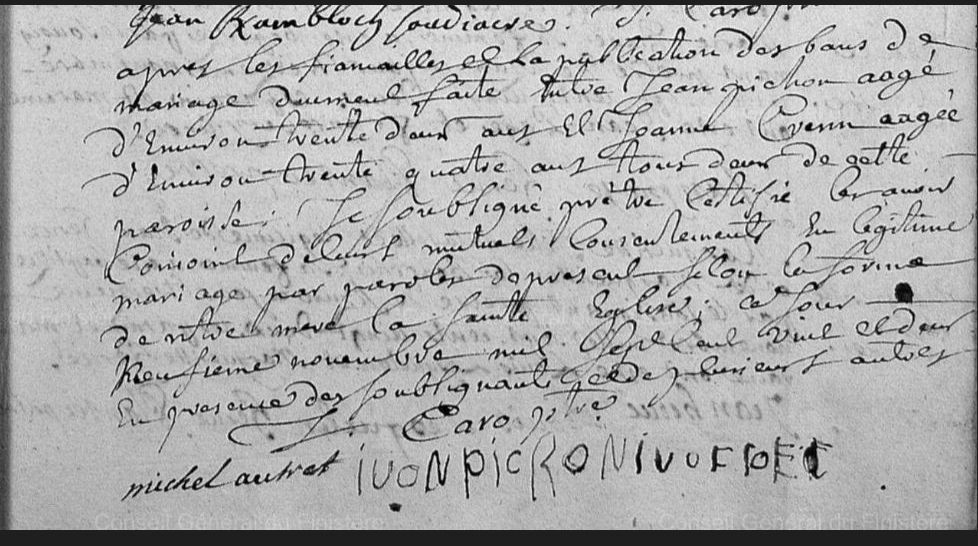 Jean Rambloch soudiacre. J. Caro ptre
apres les fiancailles et la publication des bans de
mariage deument faite entre Jean pichon aagé
d'Environ trente deux ans Et Joanne Evenn aagée
d'Environ trente quatre ans tous deux de cette
paroisse, Je soubsigné prètre Certifie les avoir
Conjoint deleurs mutuels Consentements En legitime
mariage par paroles de present selon la forme
de nôtre mere la sainte Eglise, ce jour
Neufieme novembre mil sept cent vint et deux
En presence des soubsignants et de plusieurs autres
J. Caro ptre
michel autret IVON PICRON IVO
Conseil Général du Finistère Conseil Général du Finistère